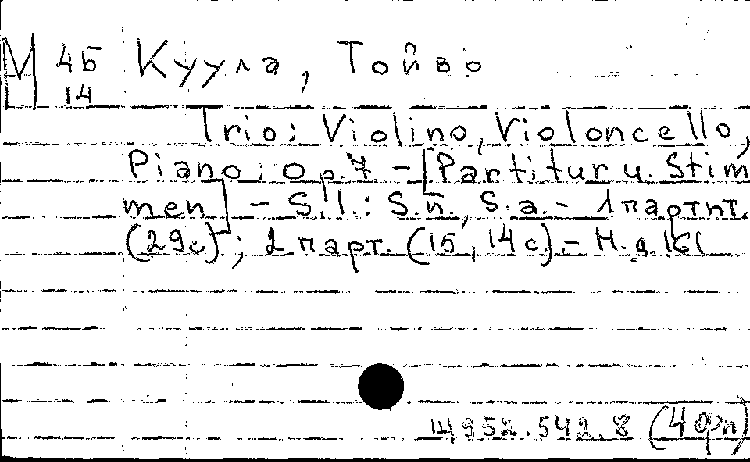 М 45 Куула, Тойво
14
Trio: Violino, Violoncello,
Piano: Op.7 - [Partitur u. Stim
men] - S.l.: S.n, S.a. - 1 партит.
(29с); 2 парт. (15, 14с). - Н.д. 161
Щ952.542.8 (4фн)